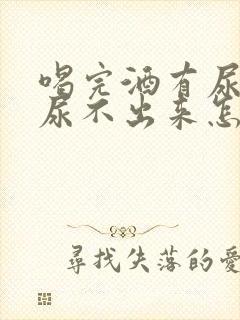 喝完酒有尿
尿不出来怎
尋找失落的愛